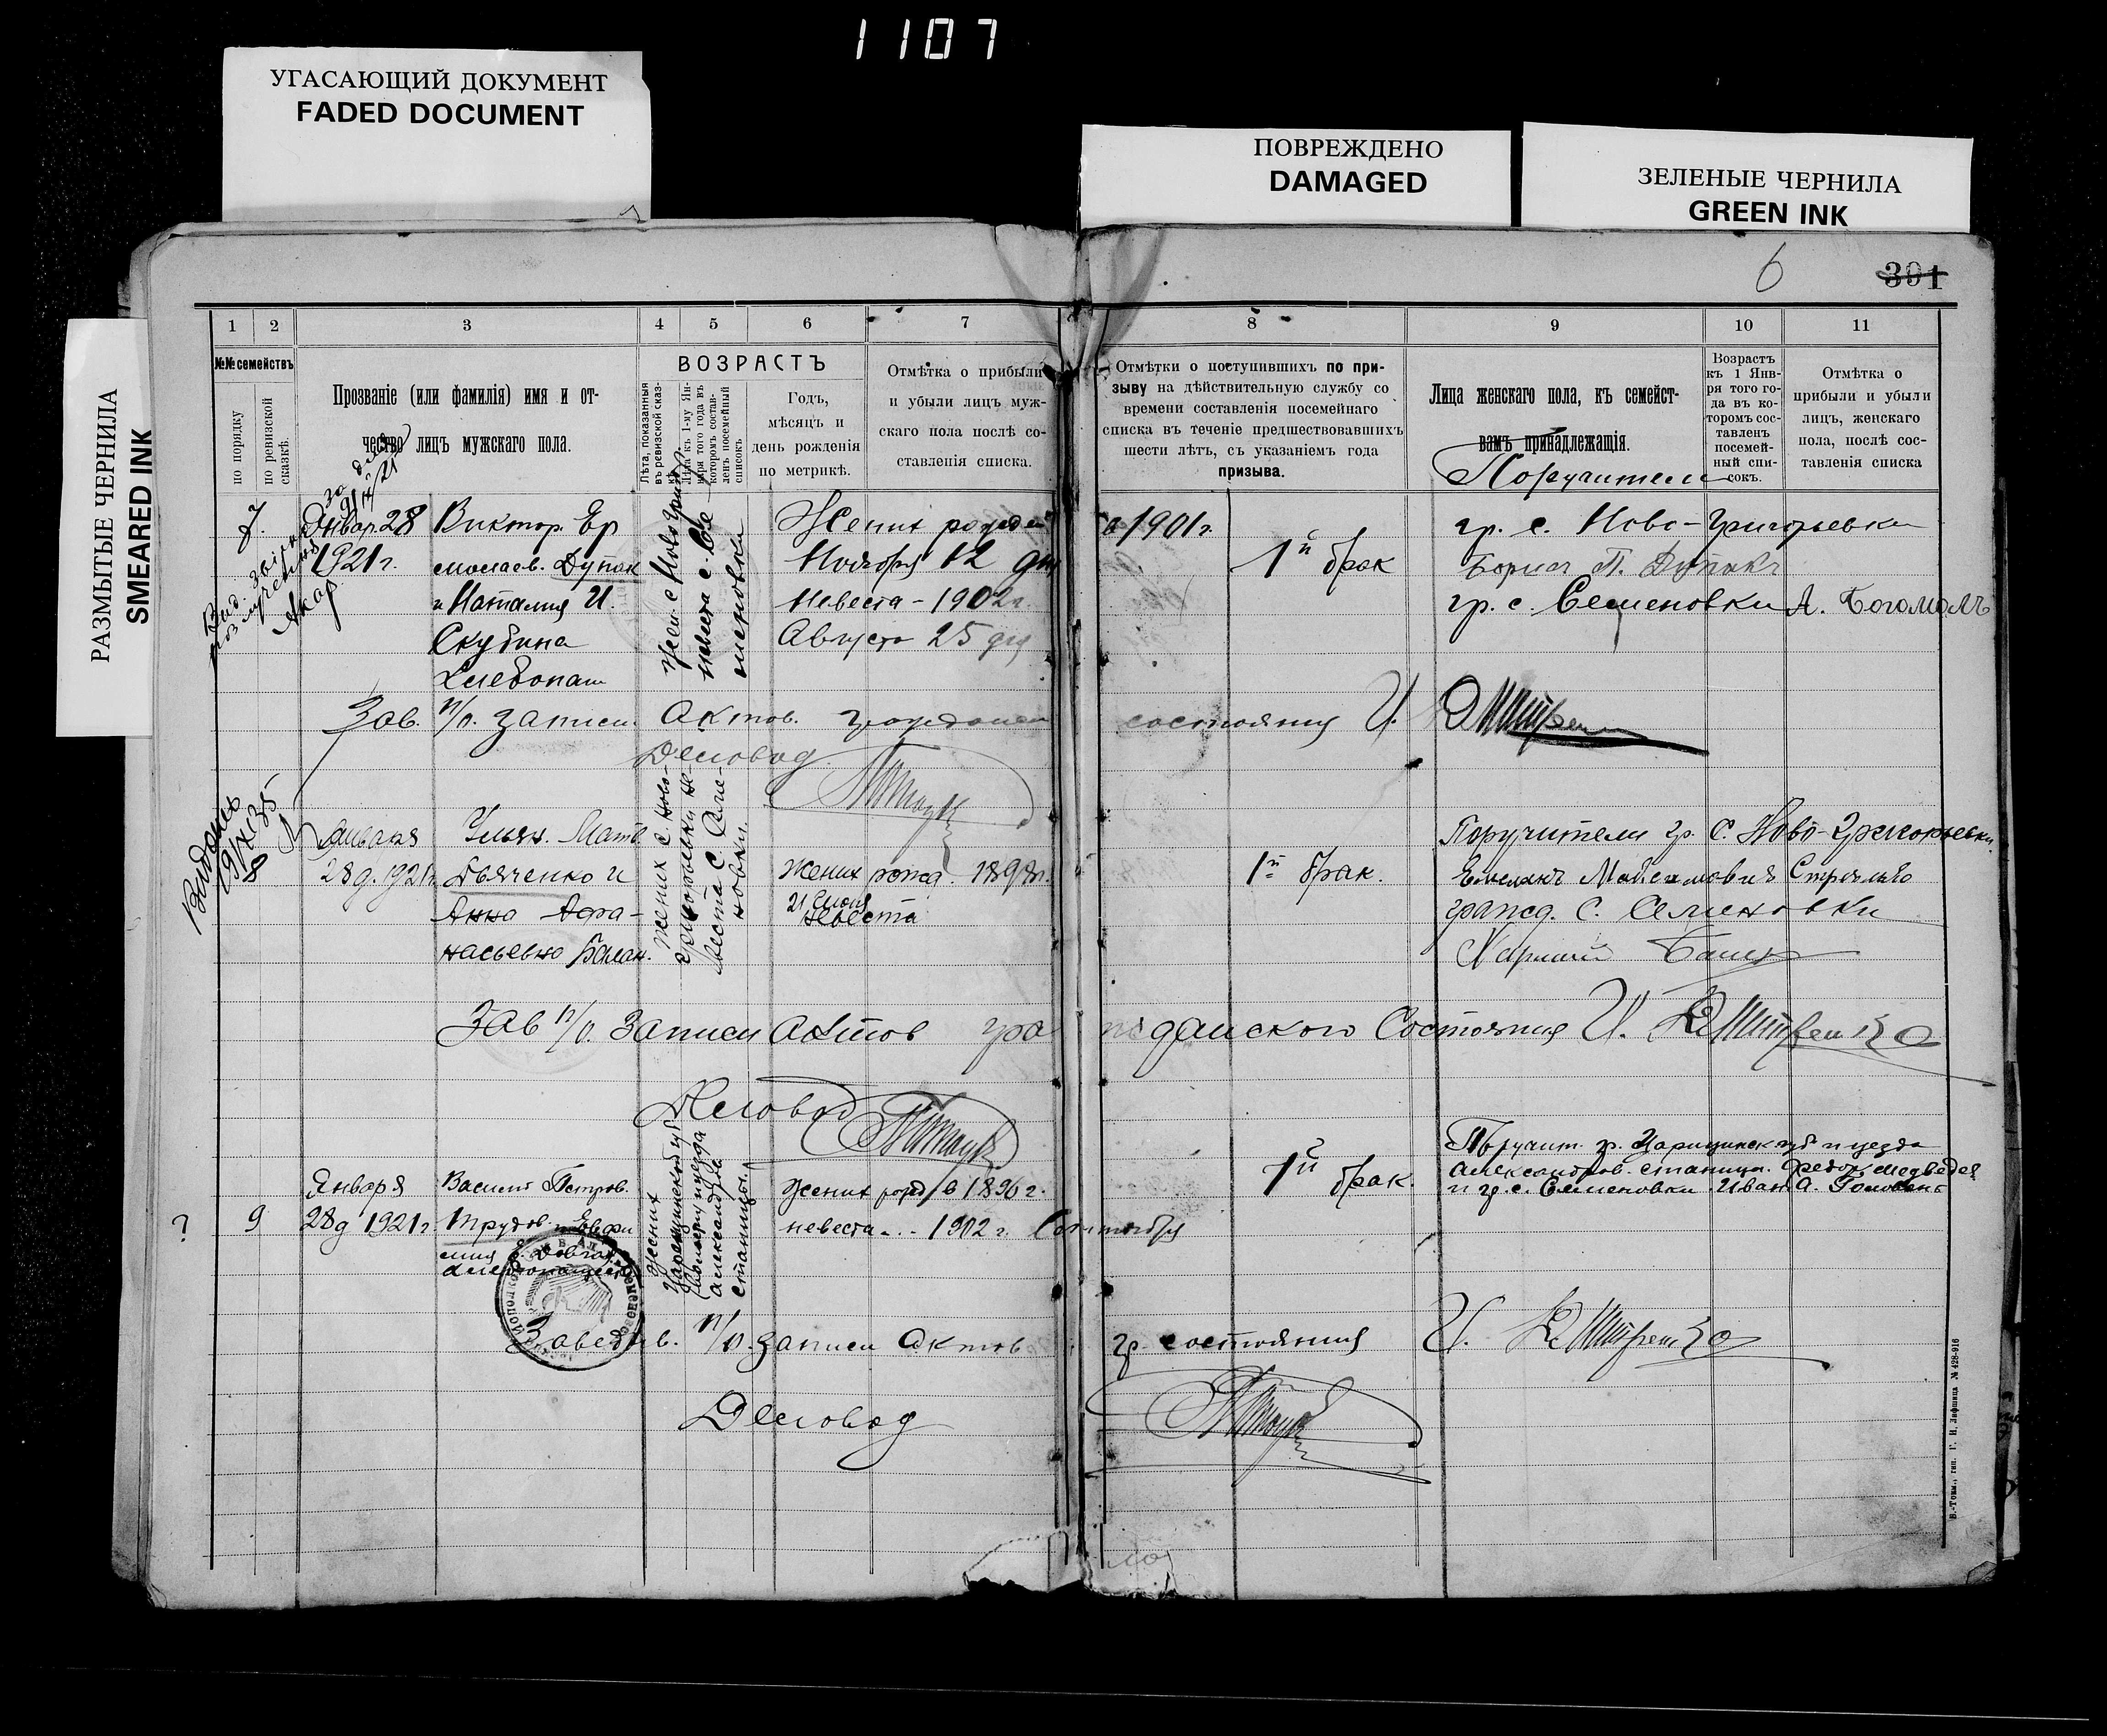 1107
УГАСАЮЩИЙ ДОКУМЕНТ
FADED DOCUMENT
ПОВРЕЖДЕНО
DAMAGED
ЗЕЛЕНЫЕ ЧЕРНИЛА
GREEN INK
РАЗМЫТЫЕ ЧЕРНИЛА
SMEARED INK
6
301
1 2 3 4 5 6 7
№№ семействъ
по порядку
по ревизской сказкѣ.
Прозваніе (или фамилія) имя и от-
чество лицъ мужскаго пола.
ВОЗРАСТЪ
Лѣта, показанныя
въ ревизской сказ-
кѣ.
Лѣта къ 1-му Ян-
варя того года въ
которомъ состав-
ленъ посемейный
списокъ
Годъ,
мѣсяцъ и
день рожденія
по метрикѣ.
Отмѣтка о прибыли
и убыли лицъ муж-
скаго пола послѣ со-
ставленія списка.
8 9 10 11
Отмѣтки о поступившихъ по при-
зыву на дѣйствительную службу со
времени составленія посемейнаго
списка въ теченіе предшествовавшихъ
шести лѣтъ, съ указаніемъ года
призыва.
Лица женскаго пола, къ семейст-
вамъ принадлежащія.
Возрастъ
къ 1 Янв-
ря того го-
да въ ко-
торомъ сос-
тавленъ
посемей-
ный спи-
сокъ.
Отмѣтка о
прибыли и убыли
лицъ, женскаго
пола, послѣ сос-
тавленія списка
Поручители
7. Январ. 28 Виктор. Ер
1921 г. молаев. Дупак
и Наталия И.
Скубина
Хлебопаш
Жен. с. Ново Григор
невеста с. Се-
меновки
Жених рожден
а 1901 г.
Ноября 12 дня
Невеста - 1902 г.
Августа 25 дня
1й брак
гр. с. Ново-Григорьевки
Борис П. Дупак
гр. с. Семеновки А. Богомолъ
Зав. п/о. записи. Актов. граждан состояния И. Дмитрен
Деловод.
Выдано
8
Января
28 д. 1921 г.
Ульян. Матв.
Дьяченко и
Анна Афа-
насьевна Балан.
Жених с. Ново-
Григорьевки не-
веста с. Семе-
новки.
Жених рожд. 1898 г.
21 Июня
невеста
1й брак.
Поручители гр. с. Ново-Григорьевки.
Емельян Мойсимович
гражд. с. Семеновки
Зав п/о. Записи Актов гражданского Состояния И. Дмитренко
Деловод
? 9
Января
28 д 1921 г
Василий Петров.
Трудов. Евфи
мия
жених
Царицинской губ
александров
станицы.
жених рожд в 1896 г.
невеста - 1902 г. Сентября
1й брак.
Поручит. гр. Царицинск губ и уезда
александров. станицы. Федор Медведев
и гр. с. Семеновки Иван А. Головань
Заведыв. п/о. записи Актов гр. состояния И. Дмитренко
Деловод
В.-Токм., тип. Г. И. Лифшица № 428-916